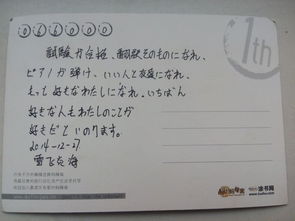 066000
1th
試験が合格、翻訳そのものになれ、
ピアノが弾け、いい人と友達になれ、
もっと好きなわたしになれ、いちばん
好きな人もわたしのことが
好きだといのります。
2014-12-27
雪飞炎海